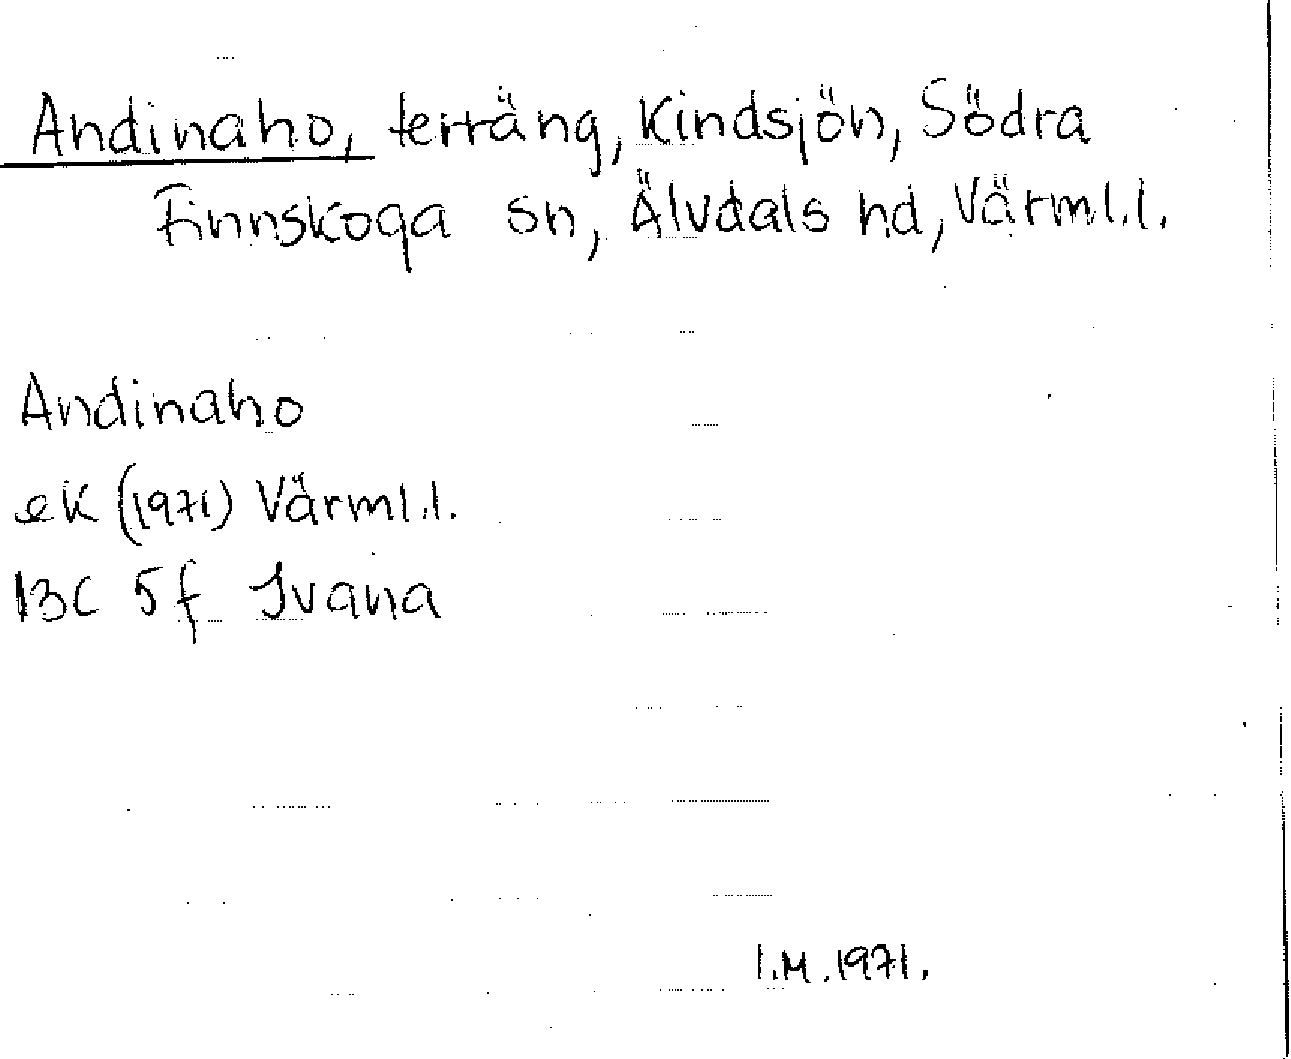 Andinaho, terräng, Kindsjön, Södra
Finnskoga sn, Älvdals hd, Värml.l.
Andinaho
ek (1971) Värml.l.
13C 5f Ivana
I.M. 1971.